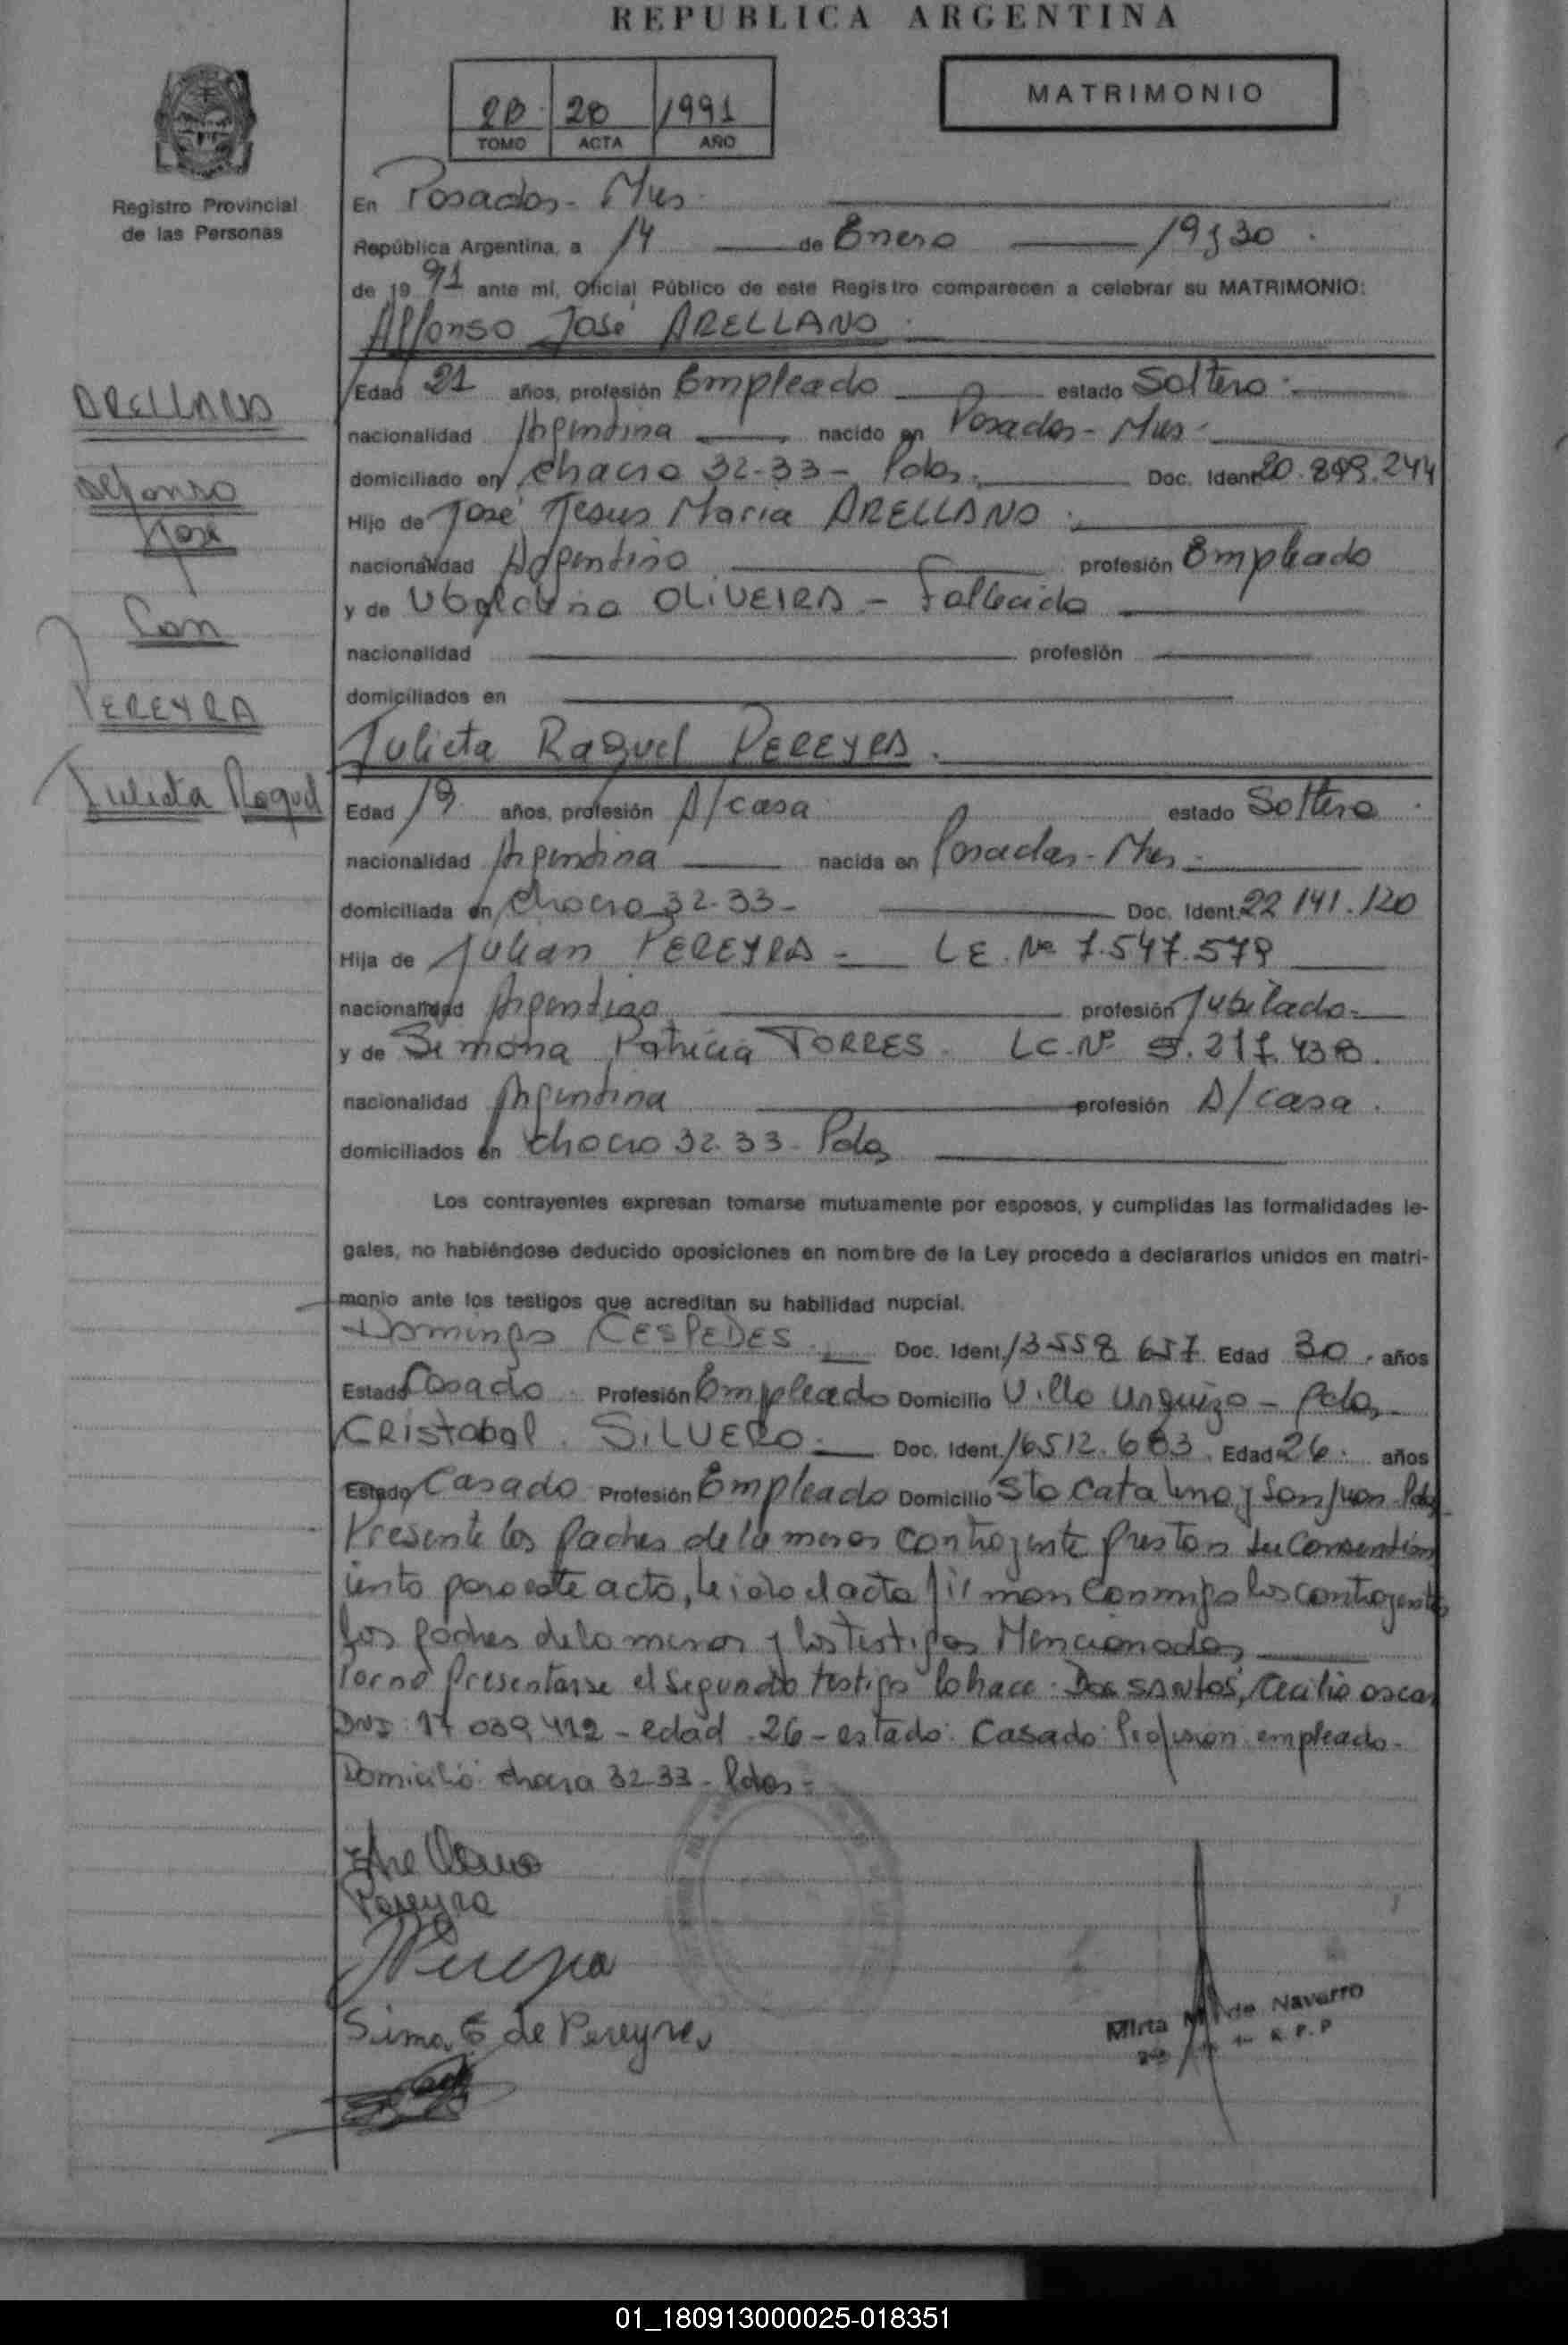 REPUBLICA ARGENTINA
2B 20 1991
TOMO ACTA AÑO
MATRIMONIO
Registro Provincial
de las Personas
En Posadas - Mnes
República Argentina, a 14 de Enero 19,30
de 1991 ante mí, Oficial Público de este Registro comparecen a celebrar su MATRIMONIO:
Alfonso José ARELLANO
Edad 21 años, profesión Empleado estado Soltero
nacionalidad Argentina nacido en Posadas - Mnes
domiciliado en chacra 32-33 - Pdas. Doc. Ident. 20.899.244
Hijo de José Jesus Maria ARELLANO
nacionalidad Argentino profesión Empleado
y de Ubaldina OLIVEIRA - Fallecida
nacionalidad profesión
domiciliados en
Julieta Raquel PEREYRA.
Edad 19 años, profesión A/casa estado Soltera
nacionalidad Argentina nacida en Posadas - Mnes
domiciliada en chacra 32-33 - Doc. Ident. 22 141.120
Hija de Julian PEREYRA - L E. Nº 7.547.579
nacionalidad Argentino profesión Jubilado
y de Simona Patricia TORRES. LC. Nº 5.217.438.
nacionalidad Argentina profesión A/casa.
domiciliados en chacra 32-33 - Pdas
ARELLANO
Alfonso
José
Con
PEREYRA
Julieta Raquel
Los contrayentes expresan tomarse mutuamente por esposos, y cumplidas las formalidades le-
gales, no habiéndose deducido oposiciones en nombre de la Ley procedo a declararlos unidos en matri-
monio ante los testigos que acreditan su habilidad nupcial.
Domingo CESPEDES Doc. Ident. 13558 657 Edad 30 años
Estado Casado Profesión Empleado Domicilio Villa Urquiza - Pdas
CRistobal SiLVERO Doc. Ident. 16512.683 Edad 26 años
Estado Casado Profesión Empleado Domicilio Sta Catalina y San Juan Pdas
Presente los padres de la menor contrayente prestan su Consentim
iento para este acto, leida el acta firman Conmigo los contrayentes
los padres de la menor y los testigos Mencionados
Por no presentarse el segundo testigo lo hace Dos SANTOS, Cecilio oscar
DNI 17 039 412 - edad 26 - estado: Casado Profesion empleado -
Domicilio chacra 32-33 - Pdas -
Arellano
Pereyra
JPereyra
Simo de Pereyra
Mirta M de Navarro
R. P. P
01_180913000025-018351